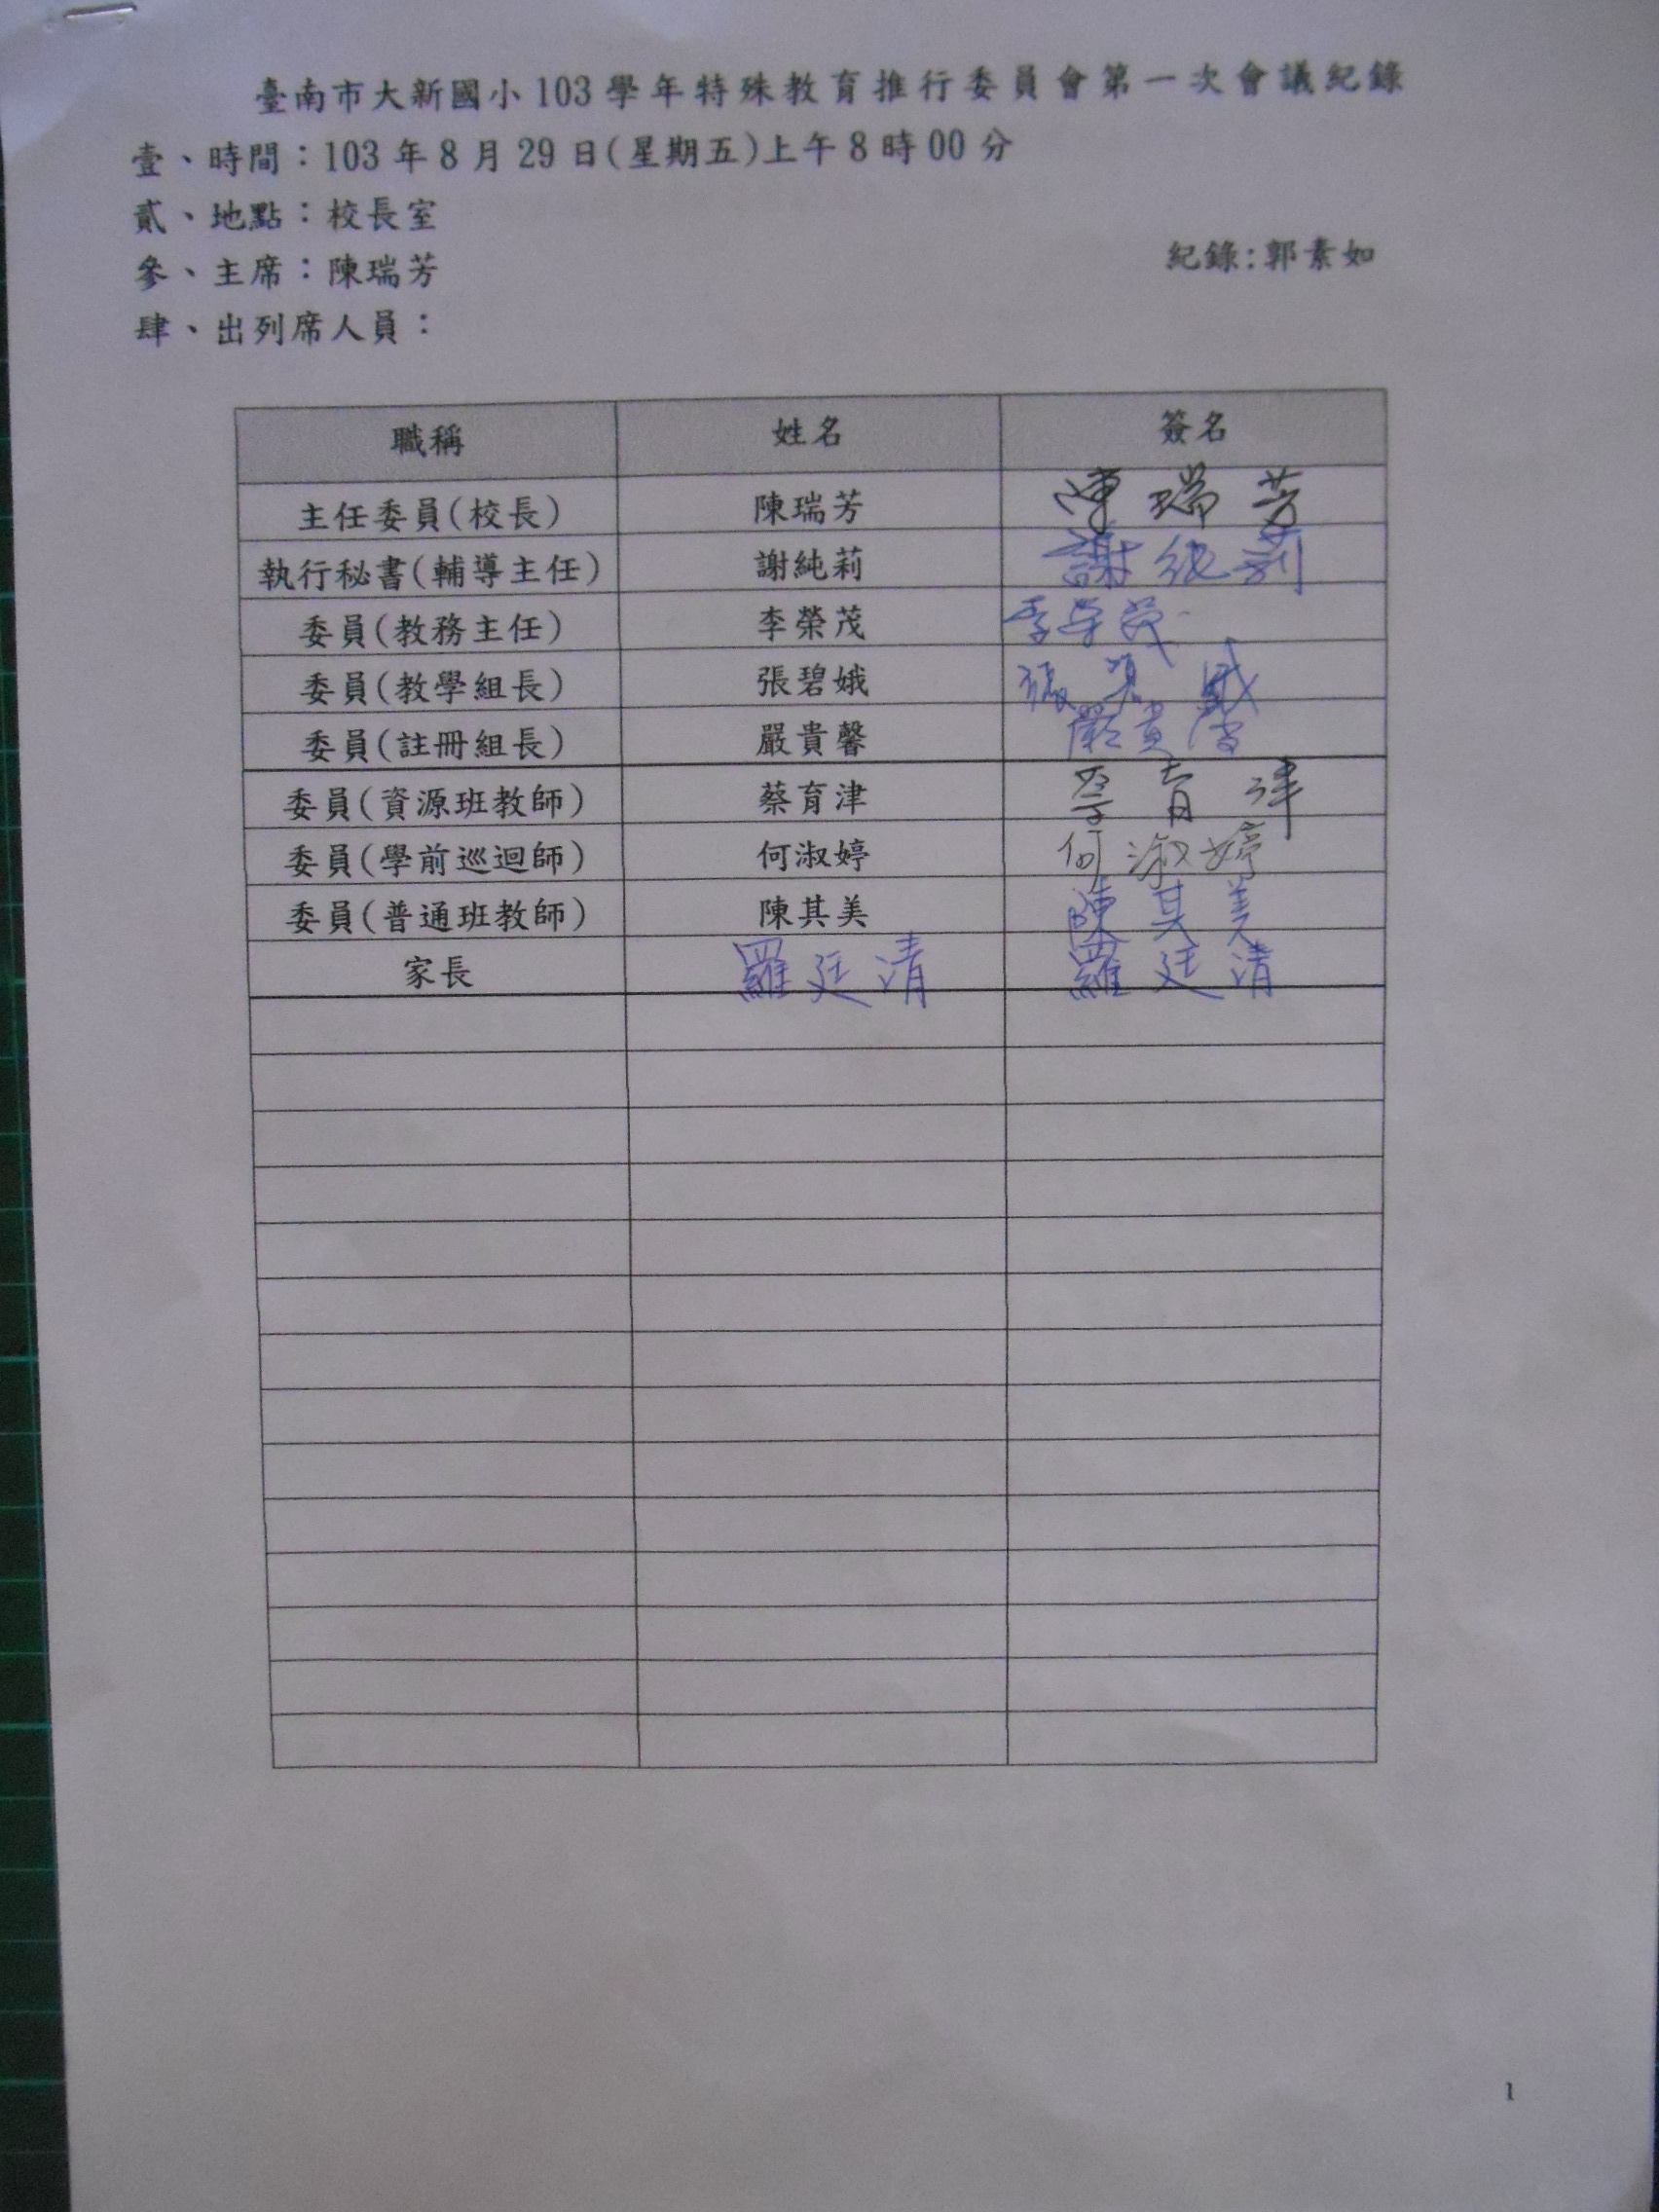 臺南市大新國小103學年特殊教育推行委員會第一次會議紀錄
壹、時間：103年8月29日(星期五)上午8時00分
貳、地點：校長室
參、主席：陳瑞芳
紀錄:郭素如
肆、出列席人員：
職稱 姓名 簽名
主任委員(校長) 陳瑞芳 陳瑞芳
執行秘書(輔導主任) 謝純莉 謝純莉
委員(教務主任) 李榮茂 李榮茂
委員(教學組長) 張碧娥 張碧娥
委員(註冊組長) 嚴貴馨 嚴貴馨
委員(資源班教師) 蔡育津 蔡育津
委員(學前巡迴師) 何淑婷 何淑婷
委員(普通班教師) 陳其美 陳其美
家長 羅廷清 羅廷清
1